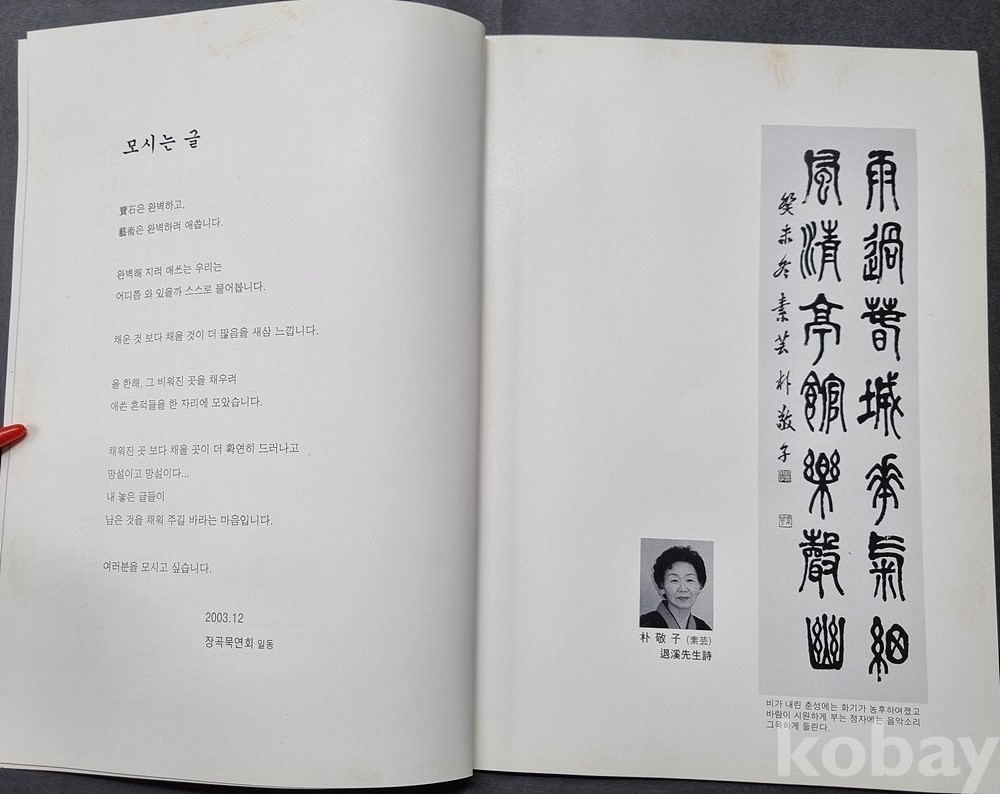 모시는 글
寶石은 완벽하고,
藝術은 완벽하려 애씁니다.
완벽해 지려 애쓰는 우리는
어디쯤 와 있을까 스스로 물어봅니다.
채운 것 보다 채울 것이 더 많음을 새삼 느낍니다.
올 한해, 그 비워진 곳을 채우려
애쓴 흔적들을 한 자리에 모았습니다.
채워진 곳 보다 채울 곳이 더 확연히 드러나고
망설이고 망설이다...
내 놓은 글들이
남은 것을 채워 주길 바라는 마음입니다.
여러분을 모시고 싶습니다.
2003.12
장곡묵연회 일동
雨過春城花氣絪
風清亭館樂聲幽
癸未冬 素芸 朴敬子
朴敬子(素芸)
退溪先生詩
비가 내린 춘성에는 화기가 농후하여졌고
바람이 시원하게 부는 정자에는 음악소리
그윽하게 들린다.
kobay